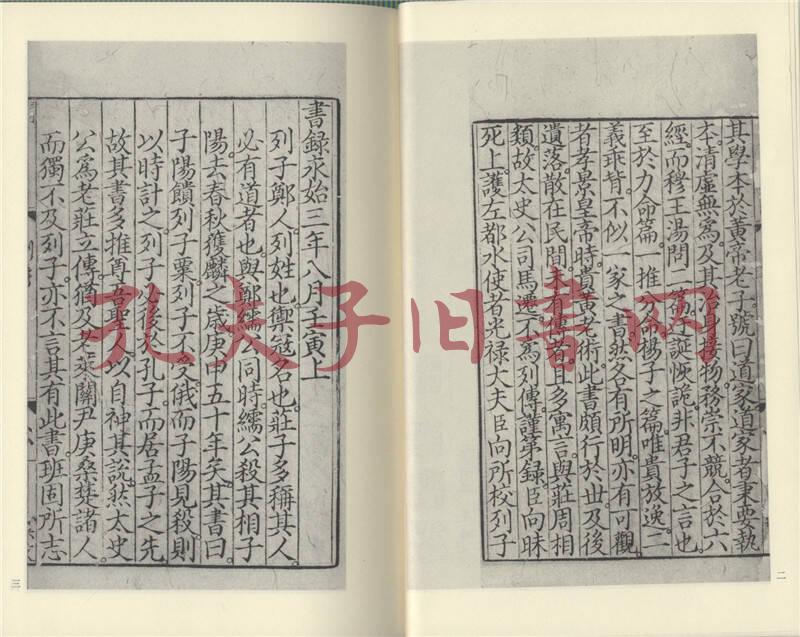 其學本於黃帝老子號曰道家道家者秉要執
本清虛無爲及其治身接物務崇不競合於六
經而穆王湯問二篇迂誕恢詭非君子之言也
至於力命篇一推分命楊子之篇唯貴放逸二
義乖背不似一家之書然各有所明亦有可觀
者孝景皇帝時貴黃老術此書頗行於世及後
遺落散在民間未有傳者且多寓言與莊周相
類故太史公司馬遷不爲列傳謹第錄臣向昧
死上護左都水使者光祿大夫臣向所校列子
二
書錄永始三年八月壬寅上
列子鄭人列姓也禦冦名也莊子多稱其人
必有道者也與鄭繻公同時繻公殺其相子
陽去春秋獲麟之歲庚申五十年矣其書曰
子陽饋列子粟列子不受俄而子陽見殺則
以時計之列子必後於孔子而居孟子之先
故其書多推尊吾聖人以自神其說然太史
公爲老莊立傳猶及老萊關尹庚桑楚諸人
而獨不及列子亦不言其有此書班固所志
三
孔夫子旧书网